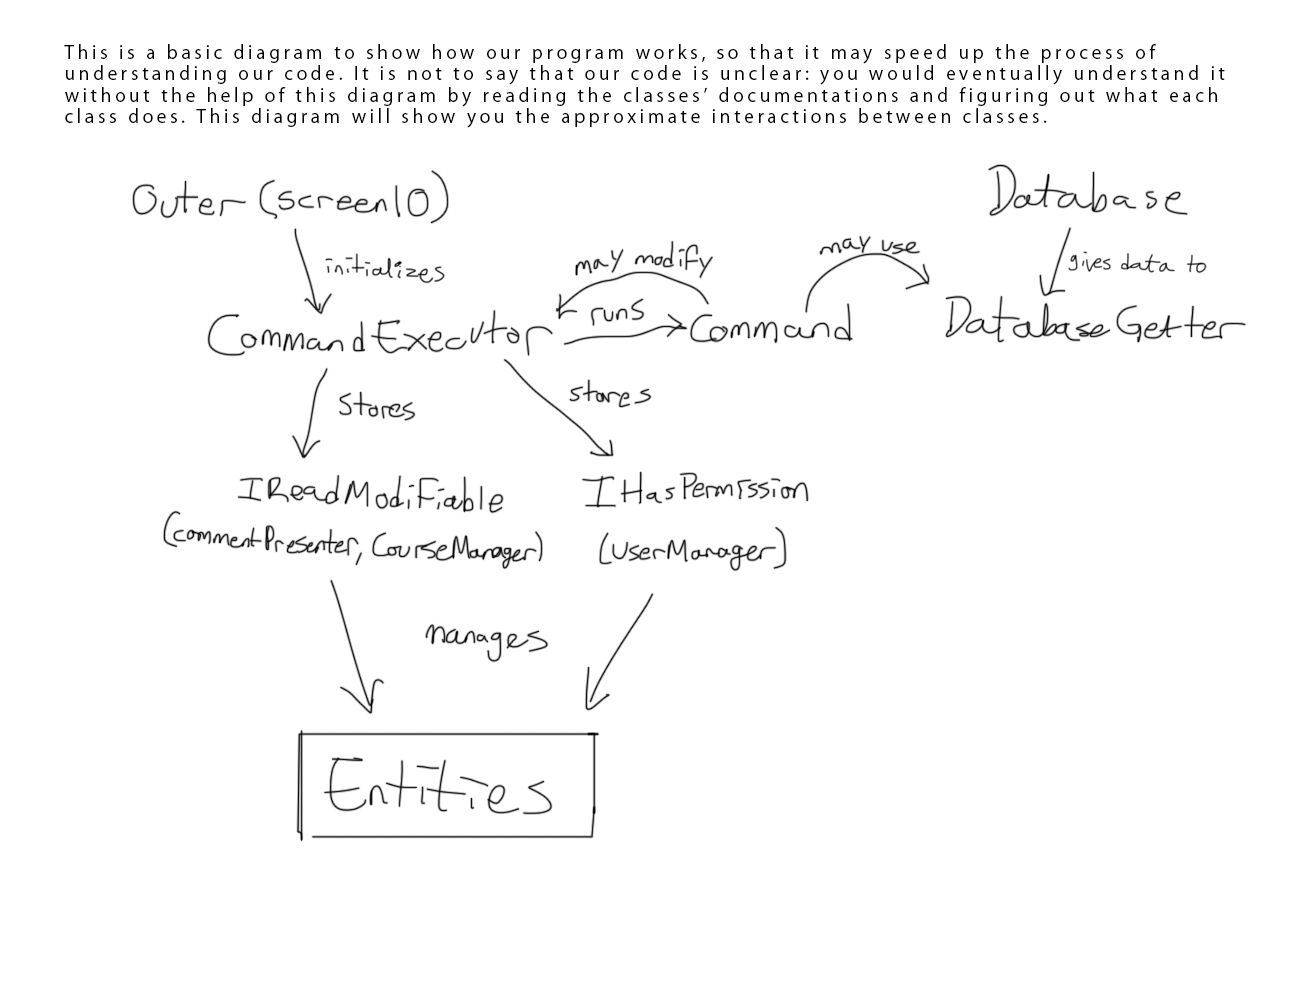 This is a basic diagram to show how our program works, so that it may speed up the process of
understanding our code. It is not to say that our code is unclear: you would eventually understand it
without the help of this diagram by reading the classes’ documentations and figuring out what each
class does. This diagram will show you the approximate interactions between classes.
Outer (screenIO)
Database
initializes
may modify
may use
gives data to
CommandExecutor
runs
Command
DatabaseGetter
stores
stores
IReadModifiable
IHasPermission
(commentPresenter, CourseManager)
(UserManager)
manages
Entities